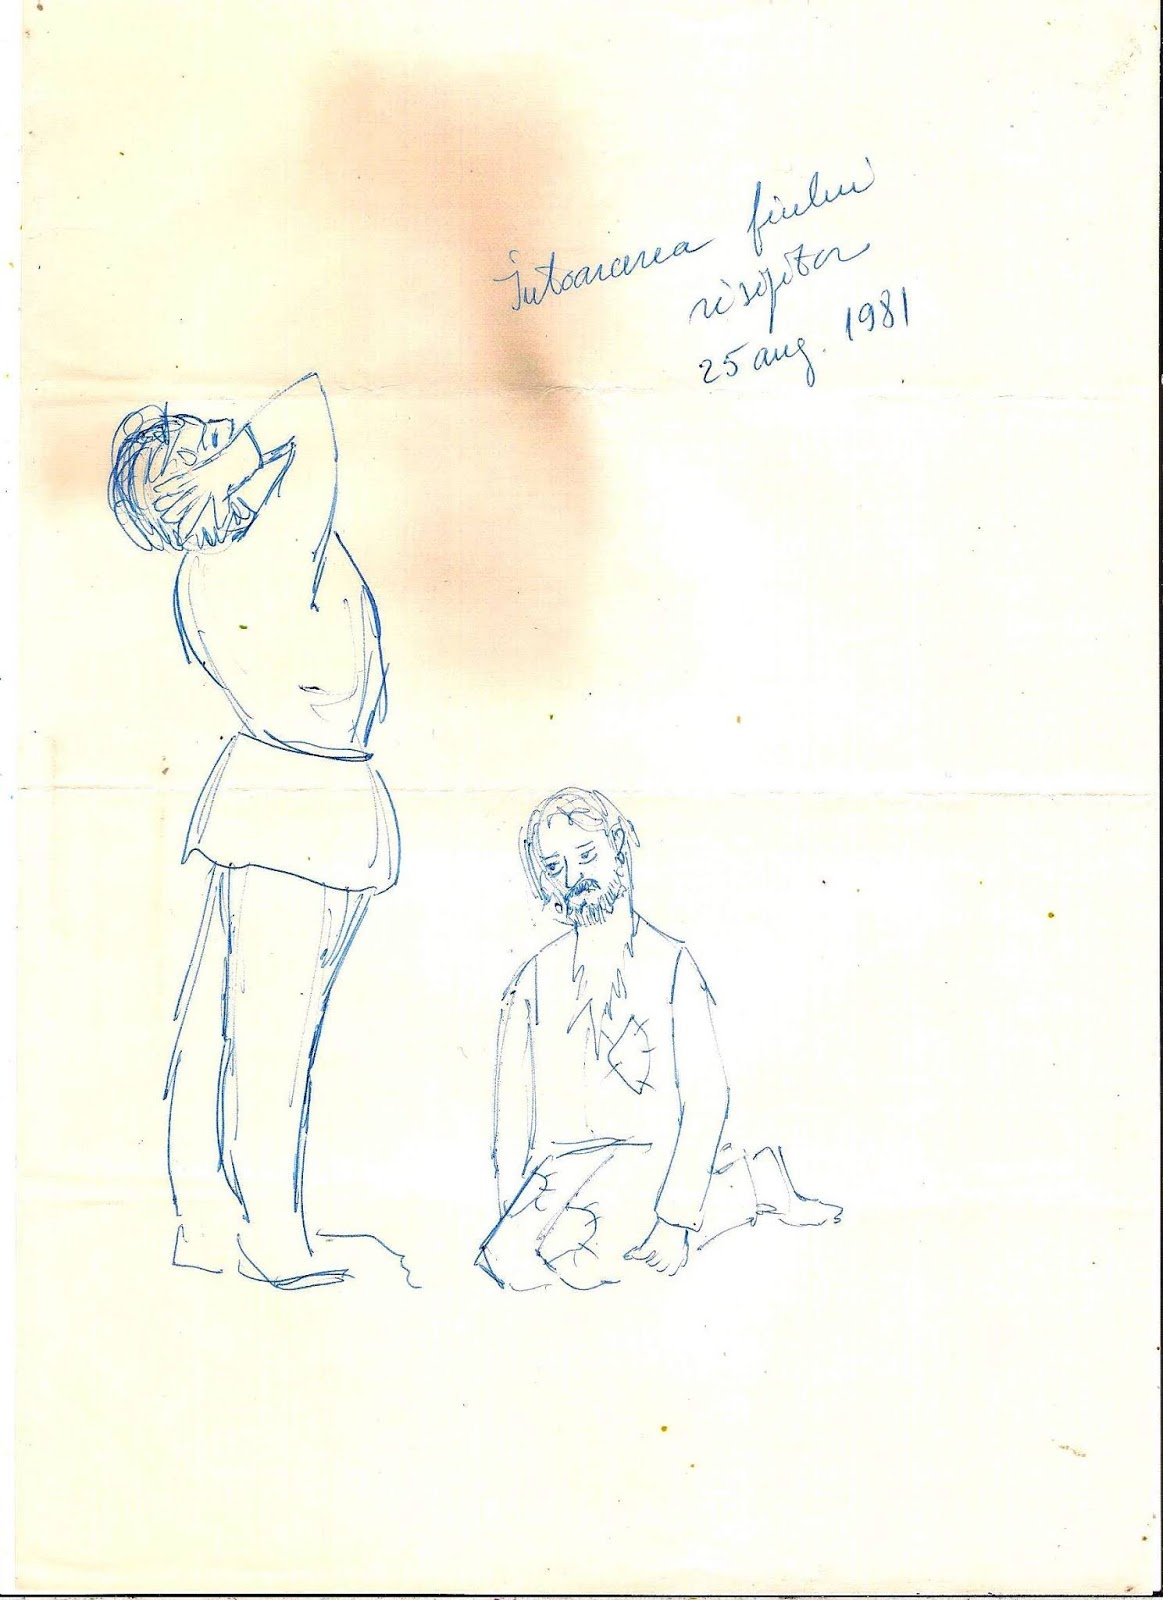 Întoarcerea fiului
risipitor
25 aug. 1981